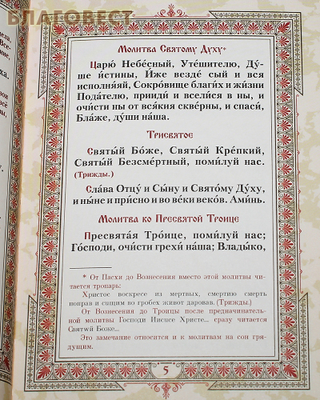 БЛАГОВЕСТ
Молитва Святому Духу*
Царю́ Небе́сный, Уте́шителю, Ду́-
ше и́стины, И́же везде́ сый и вся
исполня́яй, Сокро́вище благи́х и жи́зни
Пода́телю, прииди́ и всели́ся в ны, и
очи́сти ны от вся́кия скве́рны, и спаси́,
Бла́же, ду́ши на́ша.
Трисвятое
Святы́й Бо́же, Святы́й Кре́пкий,
Святы́й Безсме́ртный, поми́луй нас.
(Трижды.)
Сла́ва Отцу́ и Сы́ну и Свято́му Ду́ху,
и ны́не и при́сно и во ве́ки веко́в. Ами́нь.
Молитва ко Пресвятой Троице
Пресвята́я Тро́ице, поми́луй нас;
Го́споди, очи́сти грехи́ на́ша; Влады́ко,
* От Пасхи до Вознесения вместо этой молитвы чи-
тается тропарь:
Христос воскресе из мертвых, смертию смерть
поправ и сущим во гробех живот даровав. (Трижды.)
От Вознесения до Троицы после предначинатель-
ной молитвы Господи Иисусе Христе... сразу читается
Святый Боже...
Это замечание относится и к молитвам на сон гря-
дущим.
5